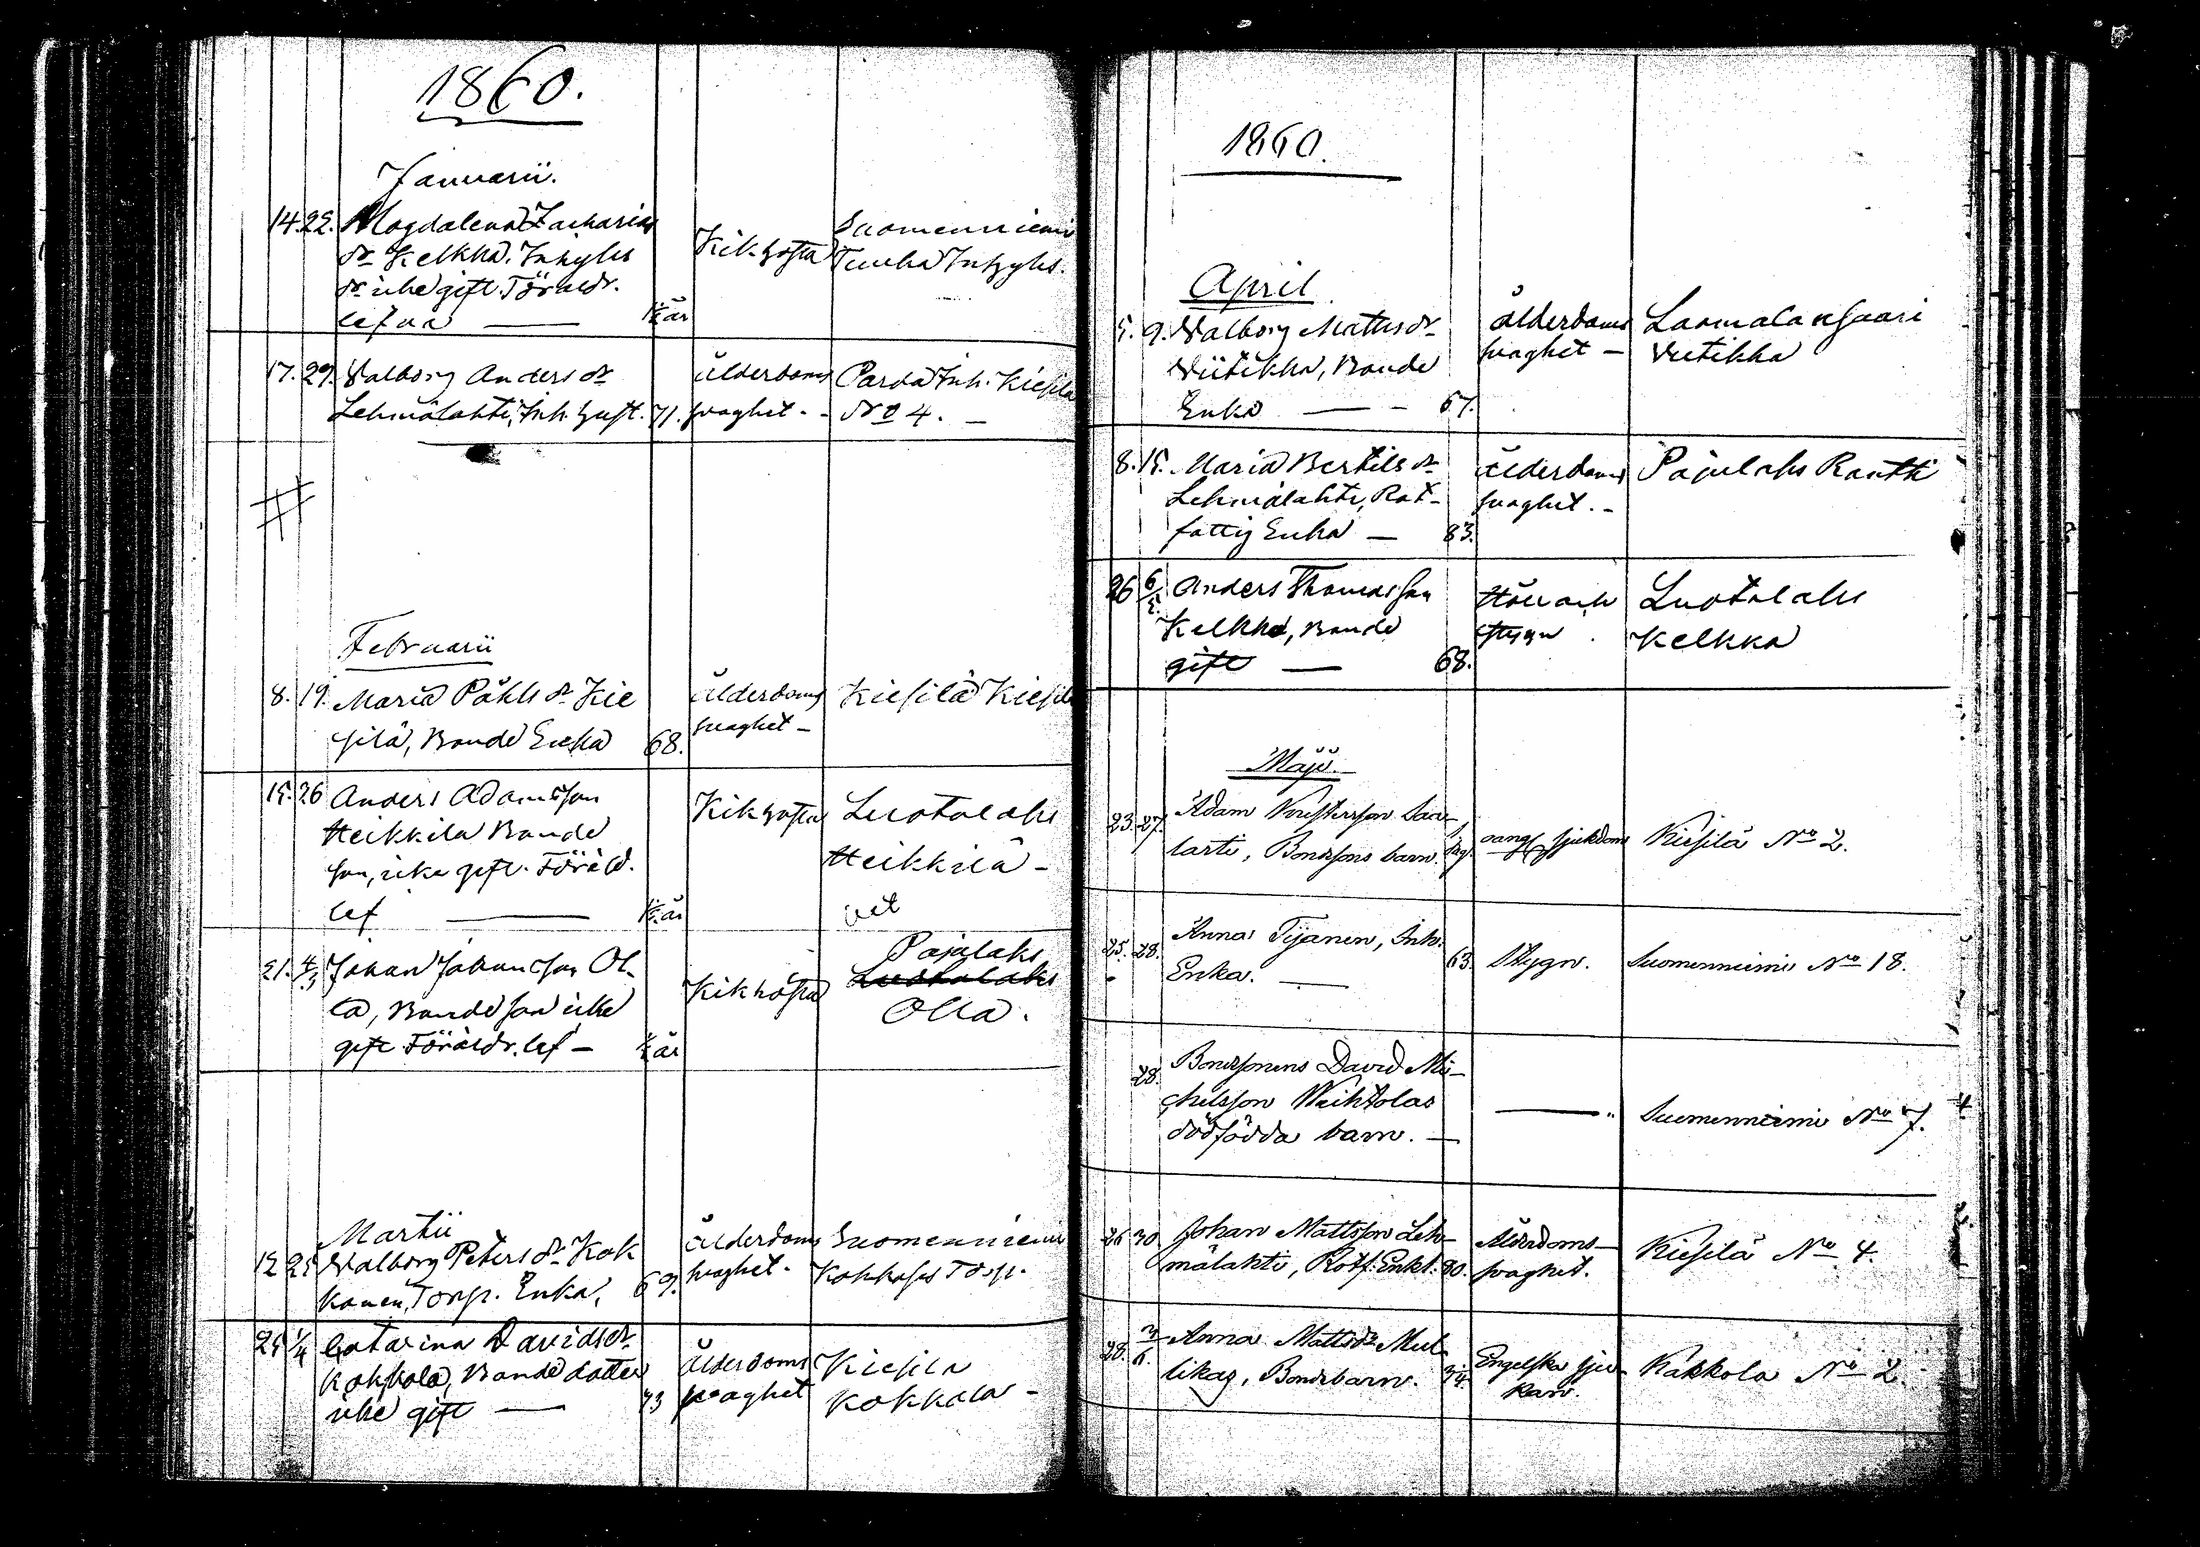 1860.
Januarii.
14. 22. Magdalena Zacharias
dr Kelkka, Inhyses
dr icke gift. Föräldr.
lefva — ½ år
Kikhosta
Suomenniemi
Inhyses.
17. 29. Valborg Anders dr
Lehmälahti, Inh. gift. 71.
ålderdoms
svaghet. -
Parda Inh. Kiesilä
No 4. —
Februarii
8. 19. Maria Påhls dr Kie
silä, Bonde Enka 68.
ålderdoms
svaghet —
Kiesilä Kiesilä
15. 26 Anders Adamsson
Heikkilä Bonde
son, icke gift. Föräld.
lef — år
Kikhosta
Luotolaks
Heikkilä —
21. 4/3 Johan Johansson Ol-
la, Bonde son icke
gift Föräldr. lef — ½ år
Kikhosta
Pajulaks
Luotolaks
Olla.
Martii
12 25 Valborg Peters dr Kok
konen, Torp. Enka, 69.
ålderdoms
svaghet.
Suomenniemi
Torp.
25 1/4 Catarina Davids dr
Kokkola, Bonde dotter
icke gift — 73
ålderdoms
svaghet
Kiesilä
Kokkola —
1860.
April
5. 9. Valborg Matts dr
Viitikka, Bonde
Enka — - 67.
ålderdoms
svaghet —
Laamalansaari
Viitikka
8. 15. Maria Bertils dr
Lehmälahti, Rot-
fattig Enka — 83.
ålderdoms
svaghet. -
Pajulaks Rantti
26 6/5 Anders Thomasson
Kelkka, Bonde
gift — 68.
Håll och
stygn.
Luotolaks
Kelkka
Maji.
23. 27. Adam
Bondesons barn.
sjukdom
Kiesilä No 2.
25. 28. Anna Tijanen, Inh.
Enka. — 63.
Stygn.
Suomenniemi No 18.
28. Bondsonens David Mi-
chelsson Weihtolas
dödfödda barn. —
—
Suomenniemi No 7.
26 30. Johan Mattsson Leh-
mälahti, Rotf. Enkl. 80.
Ålderdoms-
svaghet.
Kiesilä No 4.
28. 3/6. Anna Mattsdr Mul-
likas, Bondebarn.
Engelska sju-
kan.
Kakkola No 2.